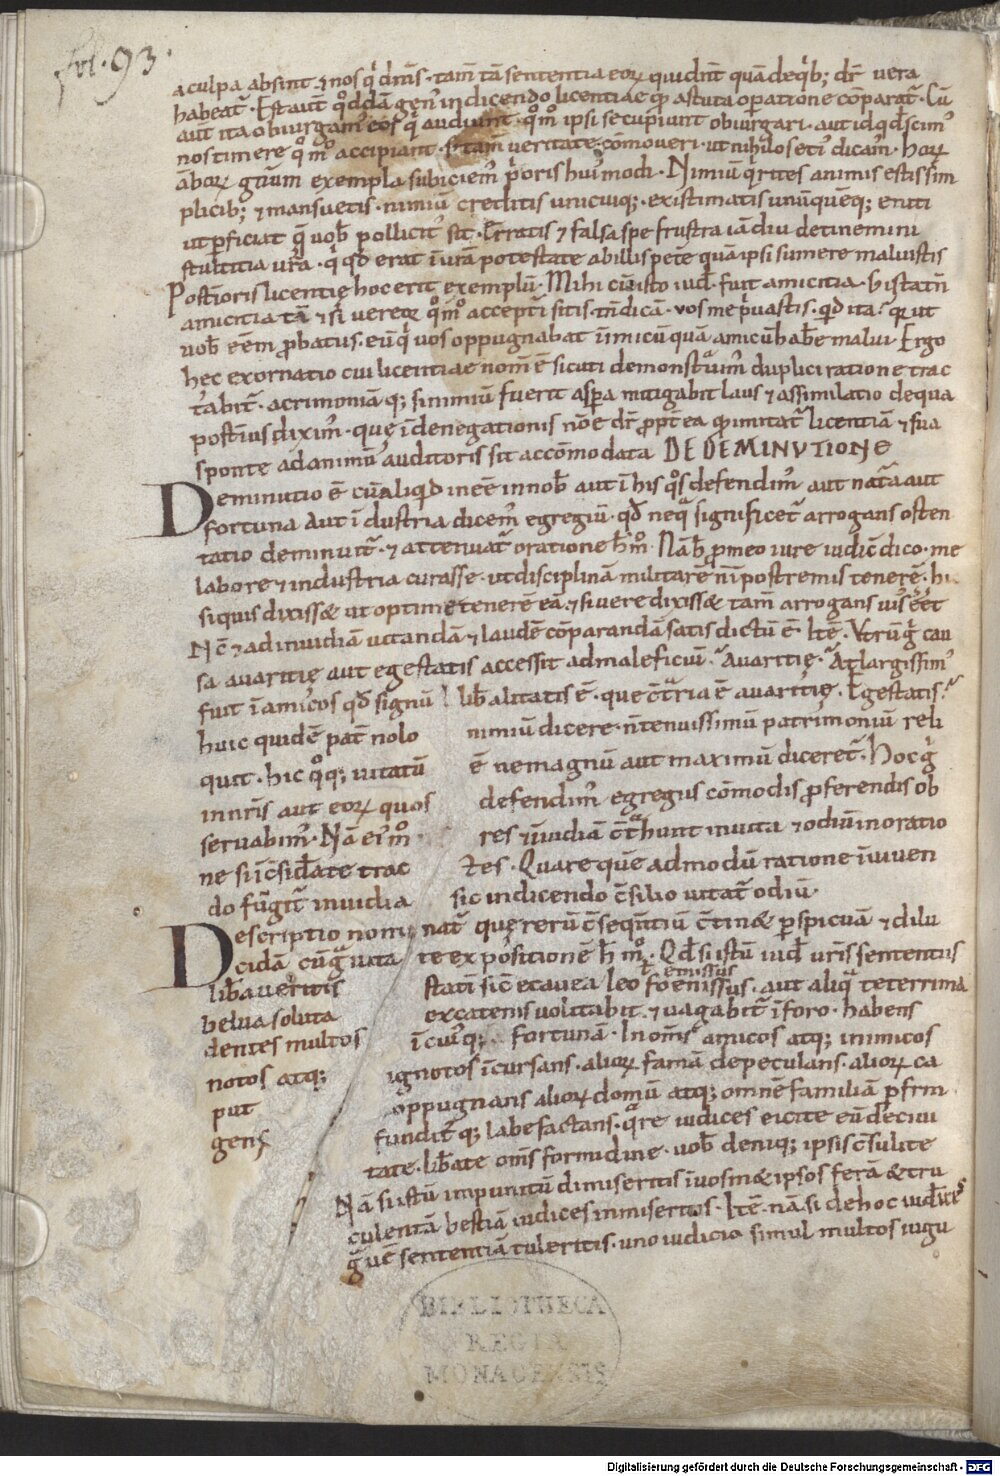 fol. 93.
a culpa absint. & nos q̇ dm̄s. tam̄ tā sententia eoꝝ quidīnt quā de q̇b; dr̄ uera
habeat᷑. Est aut̄ qͦddā gen᷒ in dicendo licentiae qͥ astuta oꝑatione cōparat᷑. Cū
aut ita obiurgam᷒ eos q̇ audiunt. qͦmͦ ipsi se cupiunt obiurgari. aut id qd̄ scim᷒
nos timere qͦmͦ accipiant. tam̄ ueritate cōmoueri. ut nihilo seti᷒ dicam᷒. hoꝝ
āboꝝ gn̄um exempla subiciem᷒ p̍oris hui᷒modi. Nimiū q̍rites animis estis sim
plicib; & mansuetis. nimiū creditis unicuiq;. existimatis unūquēq; eniti
ut ꝑficiat q̄ uob̄ pollicit᷒ sit. Erratis & falsa spe frustra iā diu detinemini
stultitia ur̄a. q̍ qd̄ erat ī ur̄a potestate ab illis petē quā ipsi sumere maluistis
Post̄ioris licentię hoc erit exemplū. Mihi cū isto iud̄. fuit amicitia. s; ista tn̄
amicitia tā & si uereoꝝ qͦmͦ accepti sitis. tn̄ dicā. uos me p̍uastis. qͥd ita? q̍a ut
uob̄ eēm ꝓbatus. eū q̍ uos oppugnabat inimicū quā amicū habe malui. Ergo
hec exornatio cui licentiae nom̄ ē sicuti demonstͣuim᷒ duplici ratione trac
tabit᷑. acrimoniā q; si nimiū fuerit aspa mitigabit laus & assimilatio de qua
post̄ius dixim᷒. quę ī denegationis nō ē dr̄ ꝓpt̄ ea qͥ imitat᷑ licentiā & sua
sponte ad animū auditoris sit accōmodata DE DEMINVTIONE
Deminutio ē cū aliqͥd inēe in nob̄ aut ī his qͦs defendim᷒ aut natͣa aut
fortuna aut īdustria dicem᷒ egregiū. qd̄ neqͣ significet᷑ arrogans osten
tatio deminuit᷑. & attenuat᷑ oratione h̄ mͦ. Nā b̄ ꝓ meo iure iudic̄ dico. me
labore & industria curasse. ut disciplinā militarē n̄ ī postremis tenerē. hic
siquis dixiss& ut optime tenerē eā. & si uere dixiss& tam̄ arrogans uis᷒ eēt
Nc̄ & ad inuidiā uitandā & laudē cōparandā satis dictū ē. Itē. Vtrū g̍ cau
sa auaritię aut egestatis accessit ad maleficiū. Auaritię. At largissim᷒
fuit ī amicos qd̄ signū lib̄alitatis ē. que cͦtͣria ē auaritię. Egestatis?
huic quidē pat̄ nolo nimiū dicere. n̄ tenuissimū patrimoniū reli
quit. hic qͦq; uitatū ē ne magnū aut maximū diceret᷑. Hoc g̍
in nr̄is aut eoꝝ quos defendim᷒ egregiis cōmodis ꝓferendis ob
seruabim᷒. Nā ei᷒ mͦ res & inuidiā c̄thunt in uita & odiū in oratio
ne si īc̄sid̄ate trac tes. Quare quē ad modū ratione ī uiuen
do fūgit᷑ inuidia sic in dicendo c̄silio uitat᷑ odiū.
Descriptio nominat᷑ que rerū c̄seqn̄tiū c̄tin& ꝑspicuā & dilu
cidā cū gͣuitate expositionē h̄ mͦ. Qd̄ si istū iud̄ ur̄is sententiis
lib̄aueritis statī sic̄ e cauea leo emissus foenissus. aut aliqͣ teterrima
belua soluta ex catenis uolitabit & uagabit᷑ ī foro. habens
dentes multos īcui᷒q; fortunā. In om̄s amicos atq; inimicos
notos atq; ignotos īcursans. alioꝝ famā depeculans. alioꝝ ca
put oppugnans alioꝝ domū atq; omnē familiā ꝑfrin
gens fundit᷒q; labefactans. qͣre iudices eicite eū de ciui
tate. lib̄ate om̄s formidine. uob̄ deniq; ipsis c̄sulite
Nā si istū impunitū dimiseritis ī uosm& ipsos ferā & tru
culentā bestiā iudices inmiseritis. Itē. nā si de hoc iud̄ices
gͣuē sententiā tuleritis. uno iudicio simul multos iugu
BIBLIOTHECA
REGIA
MONACENSIS
Digitalisierung gefördert durch die Deutsche Forschungsgemeinschaft - DFG